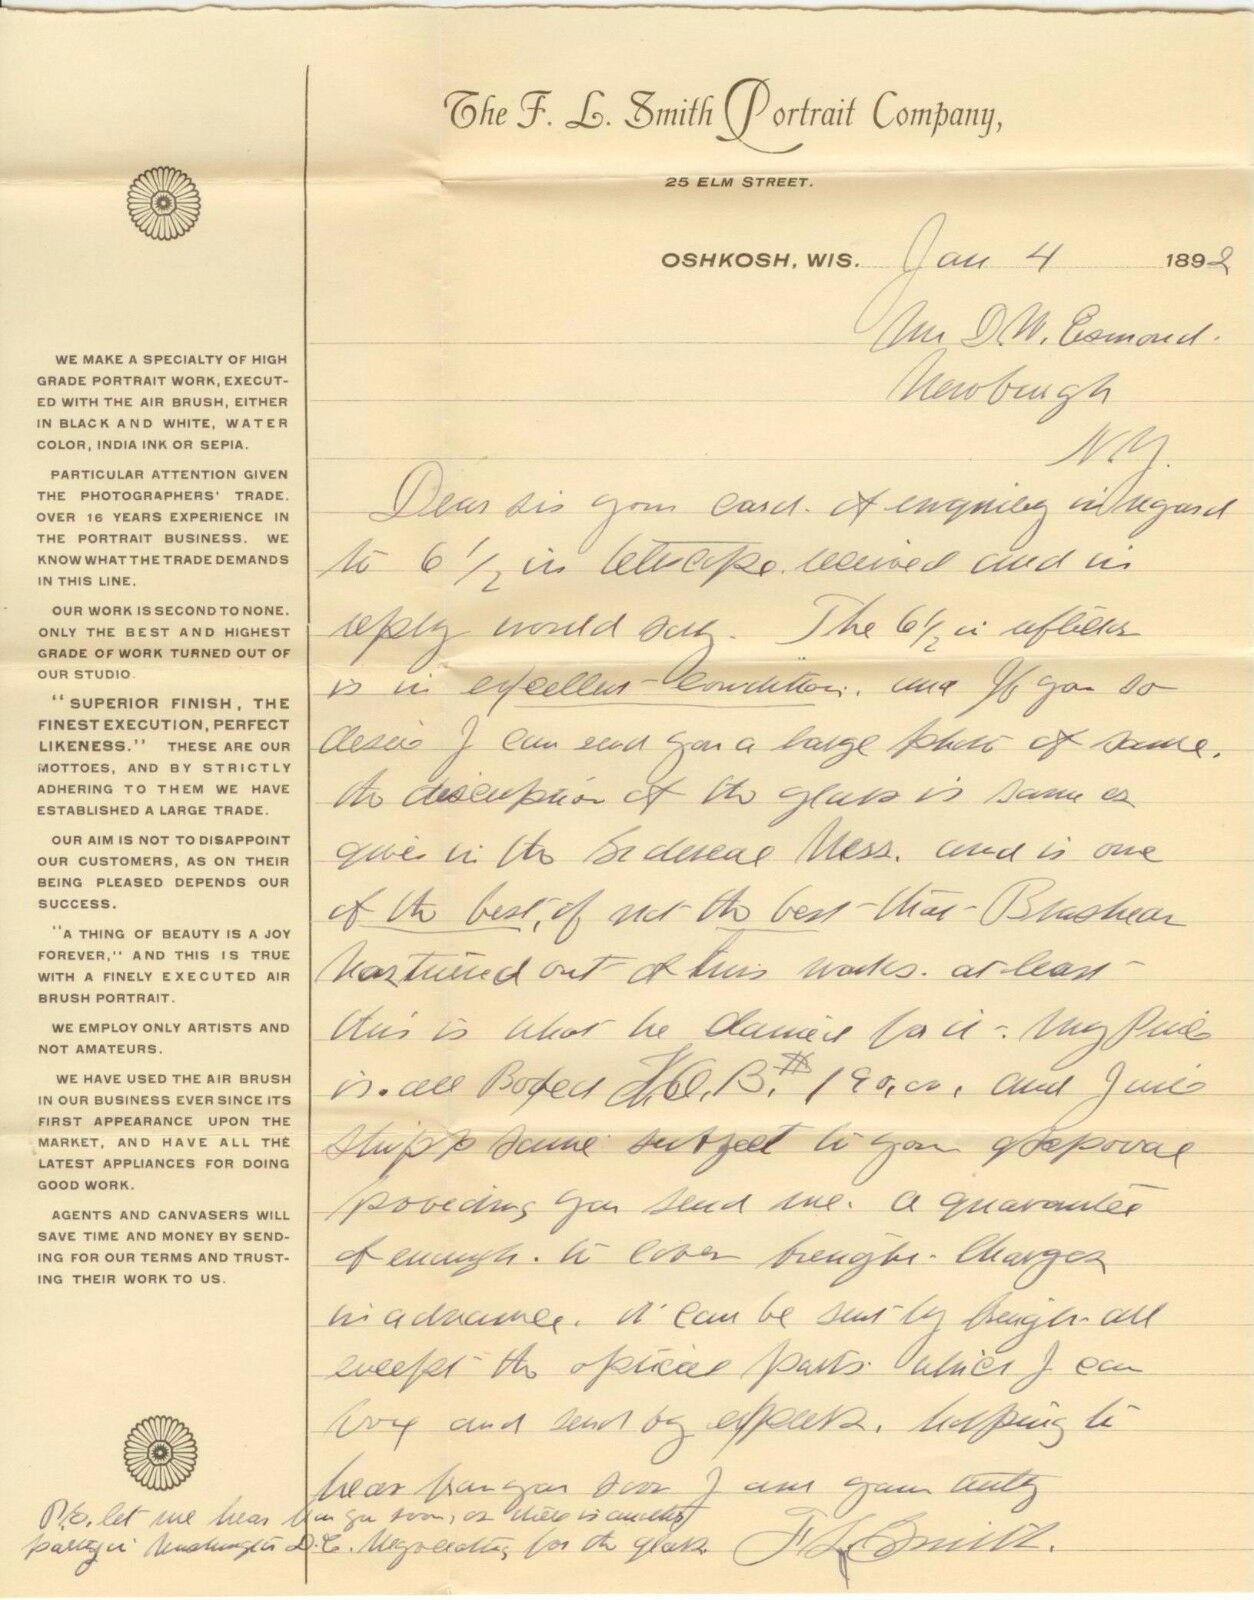 The F. L. Smith Portrait Company,
25 ELM STREET.
OSHKOSH, WIS. Jan 4 1892
Mr D. W. Esmond.
Newburgh
N.Y.
Dear sir your card. of enquirey in regard
to 6 1/2 in telescope. received and in
reply would say. The 6 1/2 in
is in excellent condition. and If you so
desire I can send you a large photo of same.
the discription of the glass is same as
given in the Sidereal Mess. and is one
of the best, if not the best that Brashear
has turned out of his works. at least
this is what he claimed for it. My Price
is. all Boxed F.O.B. $190.00. and I will
shipp same subject to your approval
proveding you send me. a guarantee
of enough. to cover freight. Charges
in advance. it can be sent by freight all
except the optical parts which I can
box and send by express. hopping to
hear from you soon I am yours truly
F L Smith.
P.S. let me hear from you soon, as there is another
party in Washington D.C. Negotiating for the glass.
WE MAKE A SPECIALTY OF HIGH
GRADE PORTRAIT WORK, EXECUT-
ED WITH THE AIR BRUSH, EITHER
IN BLACK AND WHITE, WATER
COLOR, INDIA INK OR SEPIA.
PARTICULAR ATTENTION GIVEN
THE PHOTOGRAPHERS' TRADE.
OVER 16 YEARS EXPERIENCE IN
THE PORTRAIT BUSINESS. WE
KNOW WHAT THE TRADE DEMANDS
IN THIS LINE.
OUR WORK IS SECOND TO NONE.
ONLY THE BEST AND HIGHEST
GRADE OF WORK TURNED OUT OF
OUR STUDIO.
"SUPERIOR FINISH, THE
FINEST EXECUTION, PERFECT
LIKENESS." THESE ARE OUR
MOTTOES, AND BY STRICTLY
ADHERING TO THEM WE HAVE
ESTABLISHED A LARGE TRADE.
OUR AIM IS NOT TO DISAPPOINT
OUR CUSTOMERS, AS ON THEIR
BEING PLEASED DEPENDS OUR
SUCCESS.
"A THING OF BEAUTY IS A JOY
FOREVER," AND THIS IS TRUE
WITH A FINELY EXECUTED AIR
BRUSH PORTRAIT.
WE EMPLOY ONLY ARTISTS AND
NOT AMATEURS.
WE HAVE USED THE AIR BRUSH
IN OUR BUSINESS EVER SINCE ITS
FIRST APPEARANCE UPON THE
MARKET, AND HAVE ALL THE
LATEST APPLIANCES FOR DOING
GOOD WORK.
AGENTS AND CANVASERS WILL
SAVE TIME AND MONEY BY SEND-
ING FOR OUR TERMS AND TRUST-
ING THEIR WORK TO US.